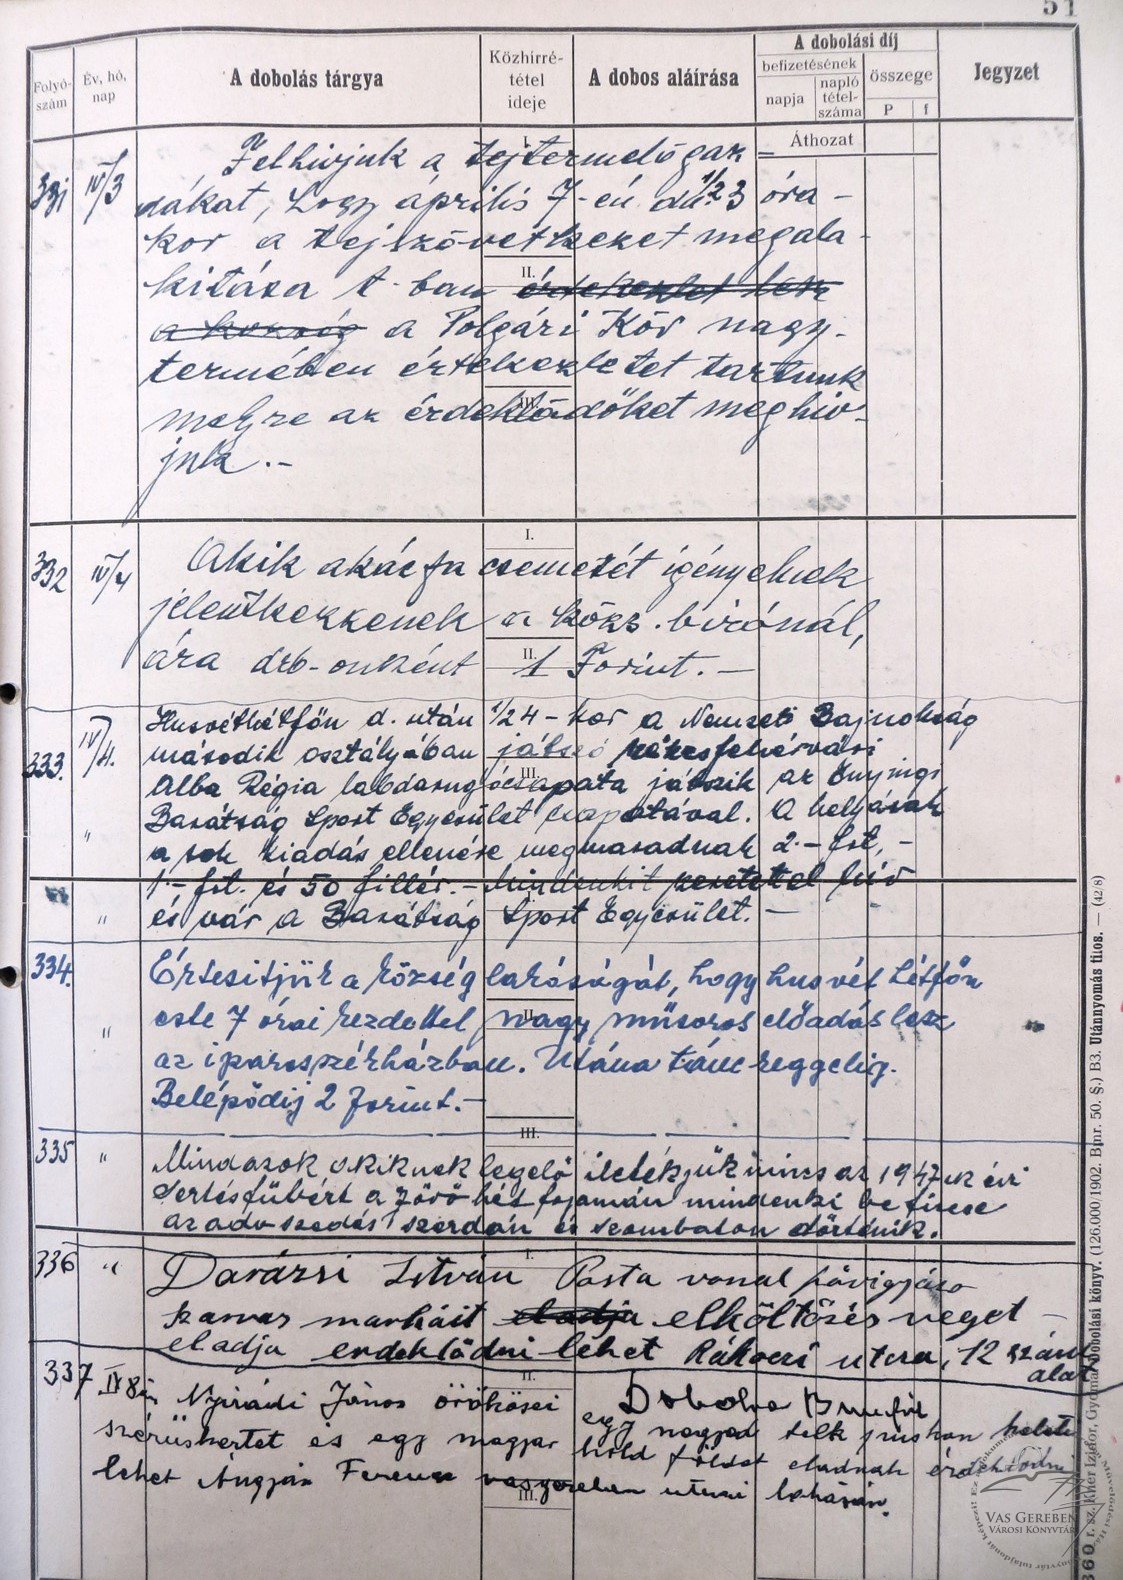 51
Folyó-
szám
Év, hó,
nap
A dobolás tárgya
Közhírré-
tétel
ideje
A dobos aláírása
A dobolási díj
befizetésének
napja
napló
tétel-
száma
összege
P f
Jegyzet
Áthozat
331 IV/3 Felhivjuk a tejtermelő gaz=
dákat, hogy április 7-én du. 1/2 3 óra-
kor a tejszövetkezet megala-
kitása t-ban értekezlet lesz
a község a Polgári Kör nagy-
termében értekezletet tartunk
melyre az érdeklődőket meghiv-
juk.-
332 IV/4 Akik akácfa csemetét igényelnek
jelentkezzenek a közs. birónál,
ára drb-onként 1 Forint.-
333. IV/4. Husvéthétfőn d. után 1/2 4-kor a Nemzeti Bajnokság
második osztályában játszó székesfehérvári
Alba Régia labdarugócsapata játszik az Enyingi
" Barátság Sport Egyesület csapatával. A helyárak
a sok kiadás ellenére megmaradnak 2.- frt, -
1.- frt. és 50 fillér.- Mindenkit szeretettel hív
" és vár a Barátság Sport Egyesület.-
334. Értesitjük a község lakóságát, hogy husvét hétfőn
" este 7 órai kezdettel nagy műsoros előadás lesz
az iparosszékházban. Utána tánc reggelig.
Belépődij 2 forint.-
335 " Mindazok akiknek legelő illetékjük nincs az 1947-ik évi
sertésfübért a jövő hét folyamán mindenki be fizesse
az adó szedés szerdán és szombaton történik.
336 " Darázsi István Posta vonal
szarvas marháit eladja elköltözés veget
eladja erdeklődni lehet Rákoczi utca, 12 szám
alat
337 IV 8án Nyirádi János örökösei egy
szérüskertet és egy magyar hold földet eladnak érdeklődni
lehet Angyán Ferenc utcai lakásán.
I.
II.
III.
I.
II.
III.
I.
II.
III.
I.
II.
III.
VAS GEREBEN
VÁROSI KÖNYVTÁR
Kner Izidor, Gyoma. Dobolási könyv. (126.000/1902. Bpnr. 50. §.) B3. Utánnyomás tilos. — (42/8)